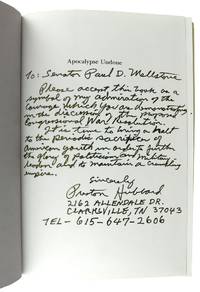 Apocalypse Undone
To: Senator Paul D. Wellstone
Please accept this book as a
symbol of my admiration of the
courage which you as demonstrated
in the discussion of the proposed
Congressional War Resolution.
It is time to bring a halt
to the periodic sacrifice of
American youth in order to further
the glory of politicians and military
and to maintain a crumbling
empire.
Sincerely
Preston Hubbard
2162 ALLENDALE DR.
CLARKSVILLE, TN 37043
TEL- 615-647-2606